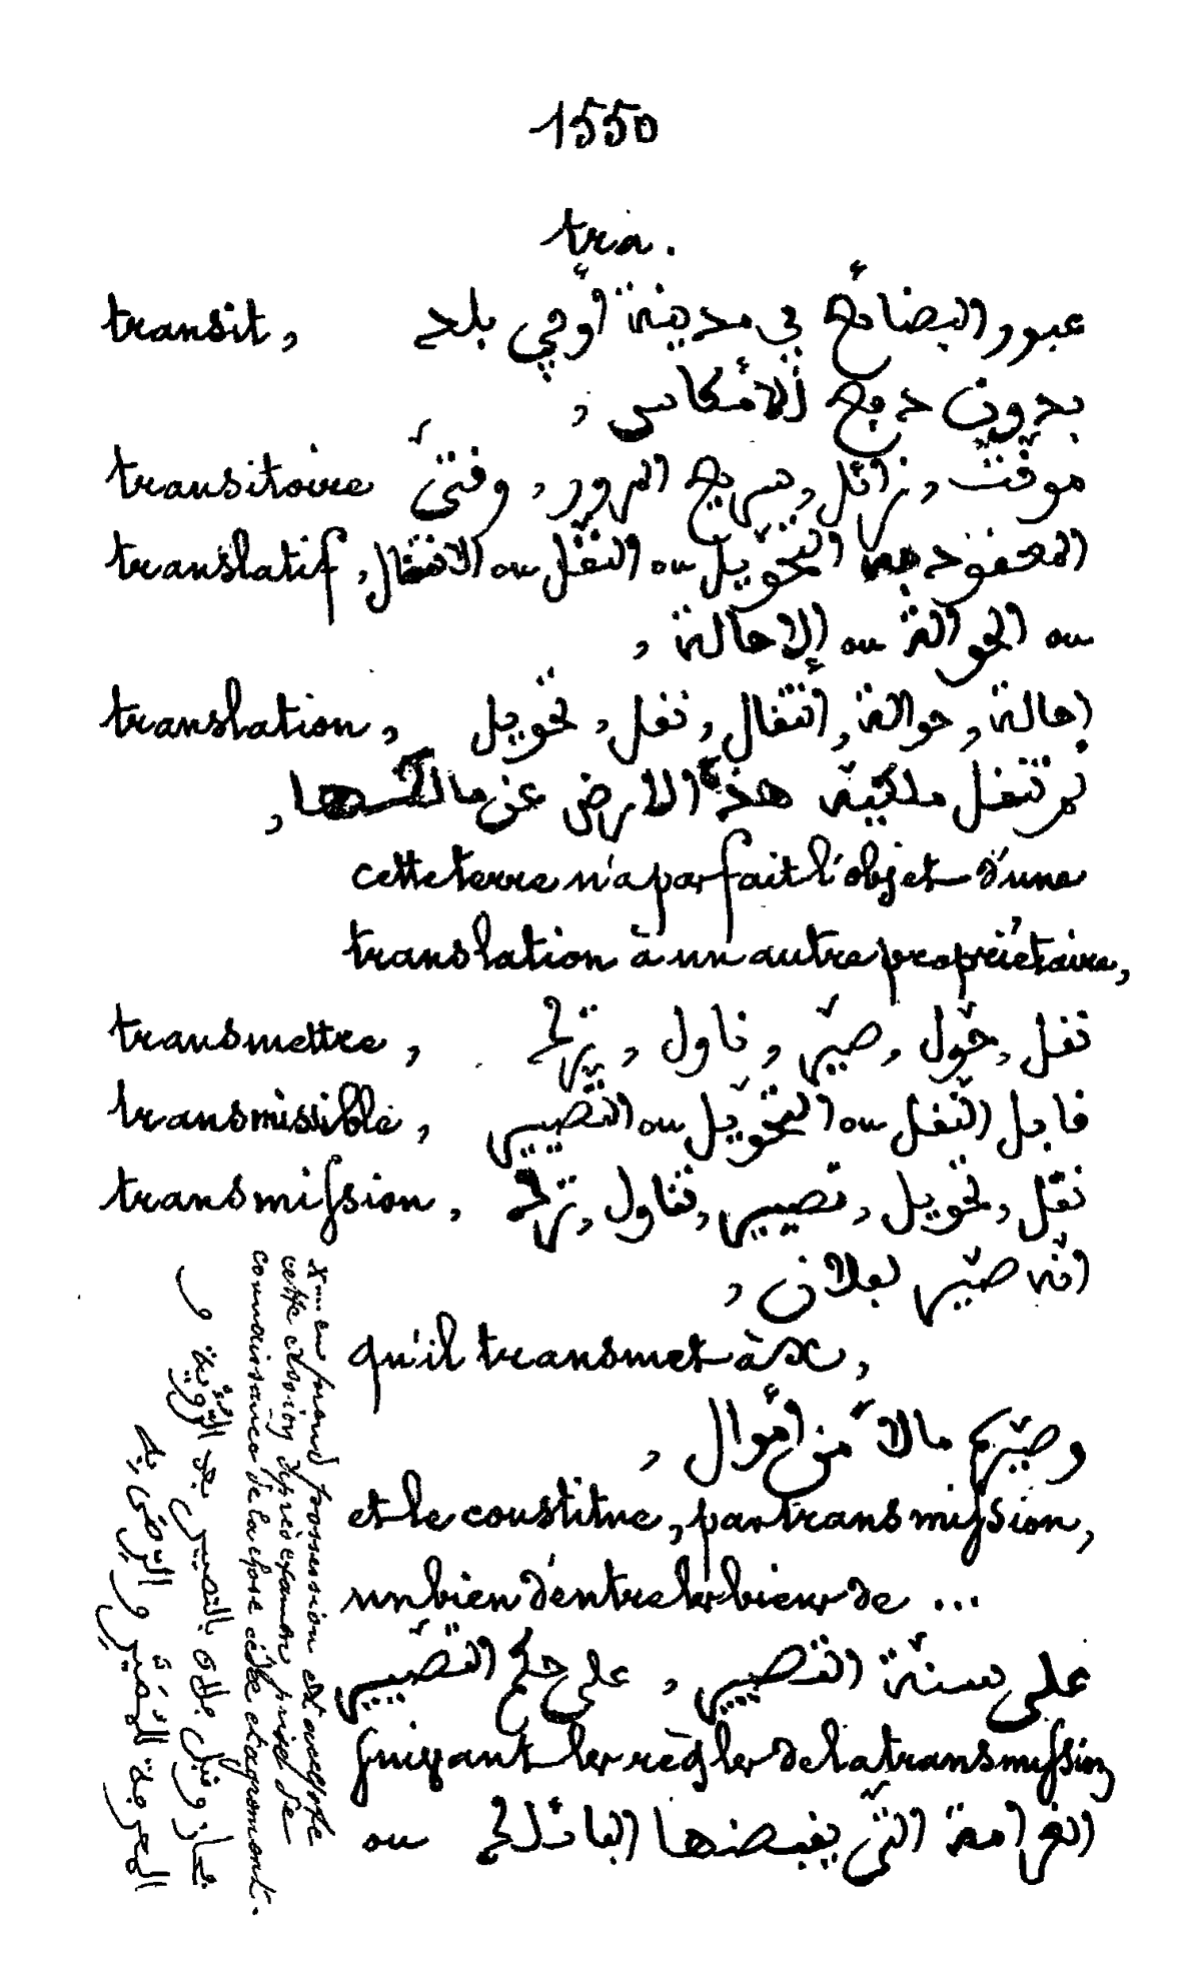 1550
tra.
transit, عبور البضائع في مدينة أو في بلد
بدون دفع الأمكاس,
transitoire موقت, زائل, سريع المرور, وقتي
translatif, التحويل ou النقل ou الانتقال
ou الحوالة ou الإحالة,
translation, إحالة, حوالة, انتقال, نقل, تحويل
لم تنتقل ملكية هذه الارض عن
cette terre n'a pas fait l'objet d'une
translation à un autre propriétaire,
transmettre, نقل, حوّل, صيّر, ناول
transmissible, قابل النقل ou التحويل ou التصيير
transmission, نقل, تحويل, تصيير, تناول
انّه صيّر لفلان,
qu'il transmet à x,
مالا من أموال,
et le constitue, par transmission,
un bien d'entre les biens de ...
على سنة التصيير, على حكم التصيير
suivant les règles de la transmission
الغرامة التي يقبضها ou
X en prend possession et accepte
cette cession après examen, prise de
connaissance de la chose cédée et agrément.
فحاز وقبل فلان بالتصيير بعد الرؤية و
المعرفة للمصيّر والرضى به